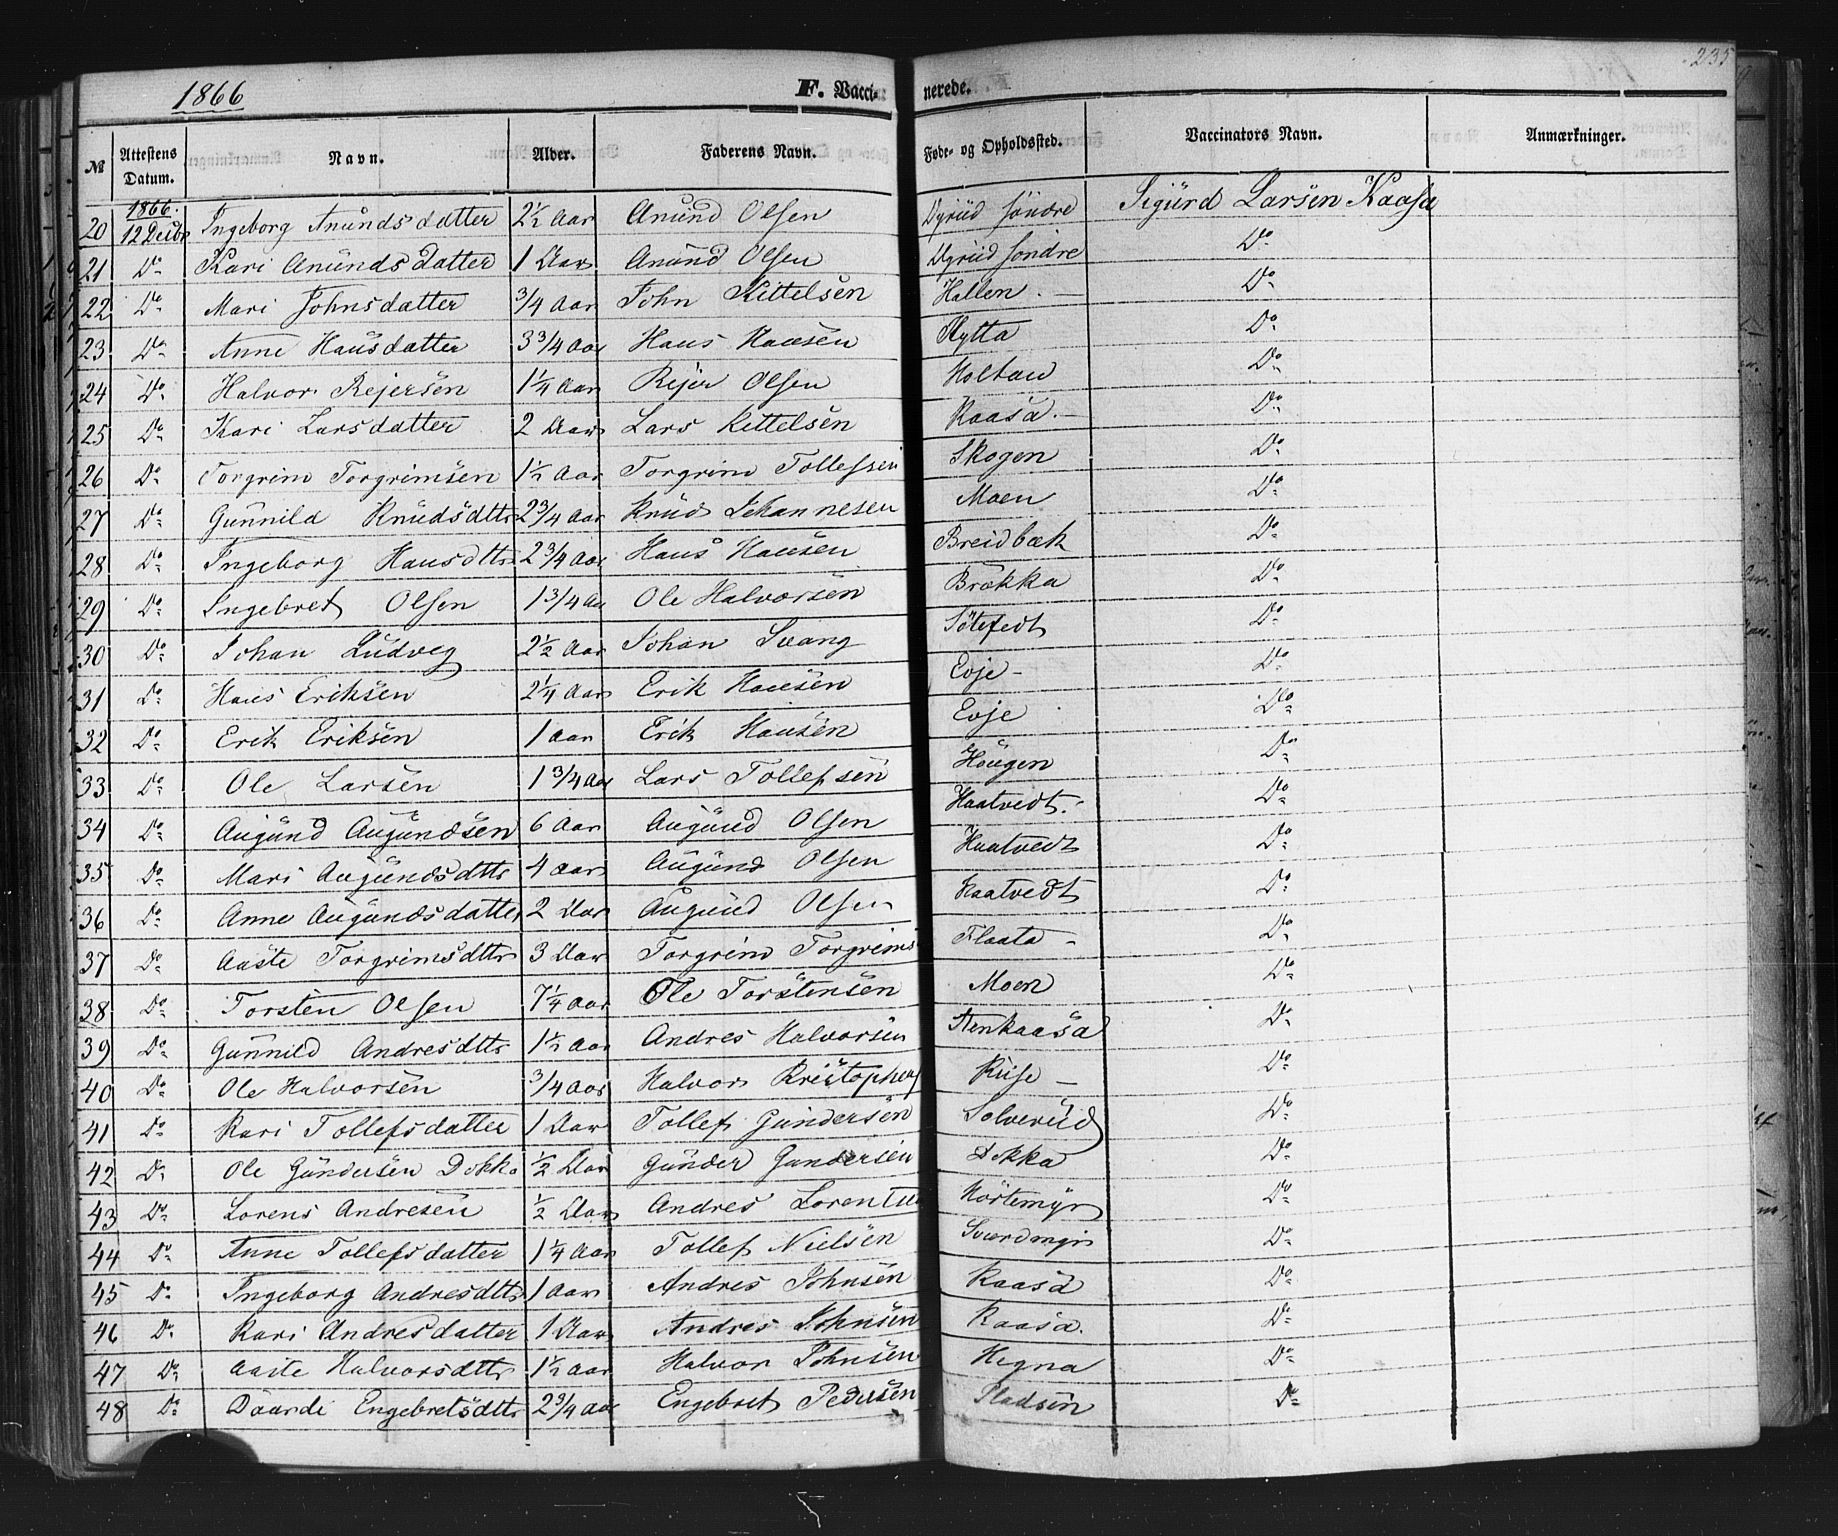 1866
F. Vacci-
nerede.
235
№ Attestens Datum. Navn. Alder. Faderens Navn. Føde- og Opholdssted. Vaccinators Navn. Anmærkninger.
1866.
20 12 Decbr Ingeborg Anunds datter 2½ Aar Anund Olsen Dyrud søndre Sigurd Larsen Kaasa
21 Do Kari Anunds datter 1 Aar Anund Olsen Dyrud søndre Do
22 Do Mari Johnsdatter 3/4 Aar John Kittelsen Hallen. — Do
23 Do Anne Hansdatter 3 3/4 Aar Hans Hansen Hytta Do
24 Do Halvor Rejersen 1¼ Aar Rejer Olsen Holtan Do
25 Do Kari Larsdatter 2 Aar Lars Kittelsen Kaasa. — Do
26 Do Torgrim Torgrimsen 1½ Aar Torgrim Tollefsen Skogen Do
27 Do Gunnild Knudsdttr 2 3/4 Aar Knud Johannesen Moen Do
28 Do Ingeborg Hansdttr 2 3/4 Aar Hans Hansen Breidbæk Do
29 Do Ingebret Olsen 1 3/4 Aa Ole Halvorsen Brækka Do
30 Do Johan Ludveg 2½ Aar Johan Svang Do
31 Do Hans Eriksen 2¼ Aar Erik Hansen Evje - Do
32 Do Erik Eriksen 1 aar Erik Hansen Evje Do
33 Do Ole Larsen 1 3/4 Aar Lars Tollefsen Haugen Do
34 Do Augund Augundsen 6 Aar Augund Olsen Haatvedt. - Do
35 Do Mari Augundsdttr 4 aar Augund Olsen Haatvedt Do
36 Do Anne Augundsdatter 2 Aar Augund Olsen Haatvedt Do
37 Do Aaste Torgrimsdttr 3 Aar Torgrim Torgrims Flaata - Do
38 Do Torsten Olsen 7¼ aar Ole Torstensen Moen Do
39 Do Gunnild Andresdttr 1½ Aar Andres Halvorsen Stenkaasa Do
40 Do Ole Halvorsen 3/4 aar Halvor Kristophers Kise — Do
41 Do Kari Tollefsdatter 1 Aar Tollef Gundersen Solverud Do
42 Do Ole Gundersen Dokka ½ Aar Gunder Gundersen Dokka Do
43 Do Lorens Andresen ½ Aar Andres Lorentse Mortemyr Do
44 Do Anne Tollefsdatter 1¼ Aar Tollef Nielsen Sværdmyr Do
45 Do Ingeborg Andresdttr 1 aar Andres Johnsen Kaasa Do
46 Do Kari Andresdatter 1 Aar Andres Johnsen Kaasa. Do
47 Do Aaste Halvorsdttr 1½ aar Halvor Johnsen Hegna Do
48 Do Daarde Engebretsdttr 2 3/4 aar Engebret Pedersen Pladsen Do